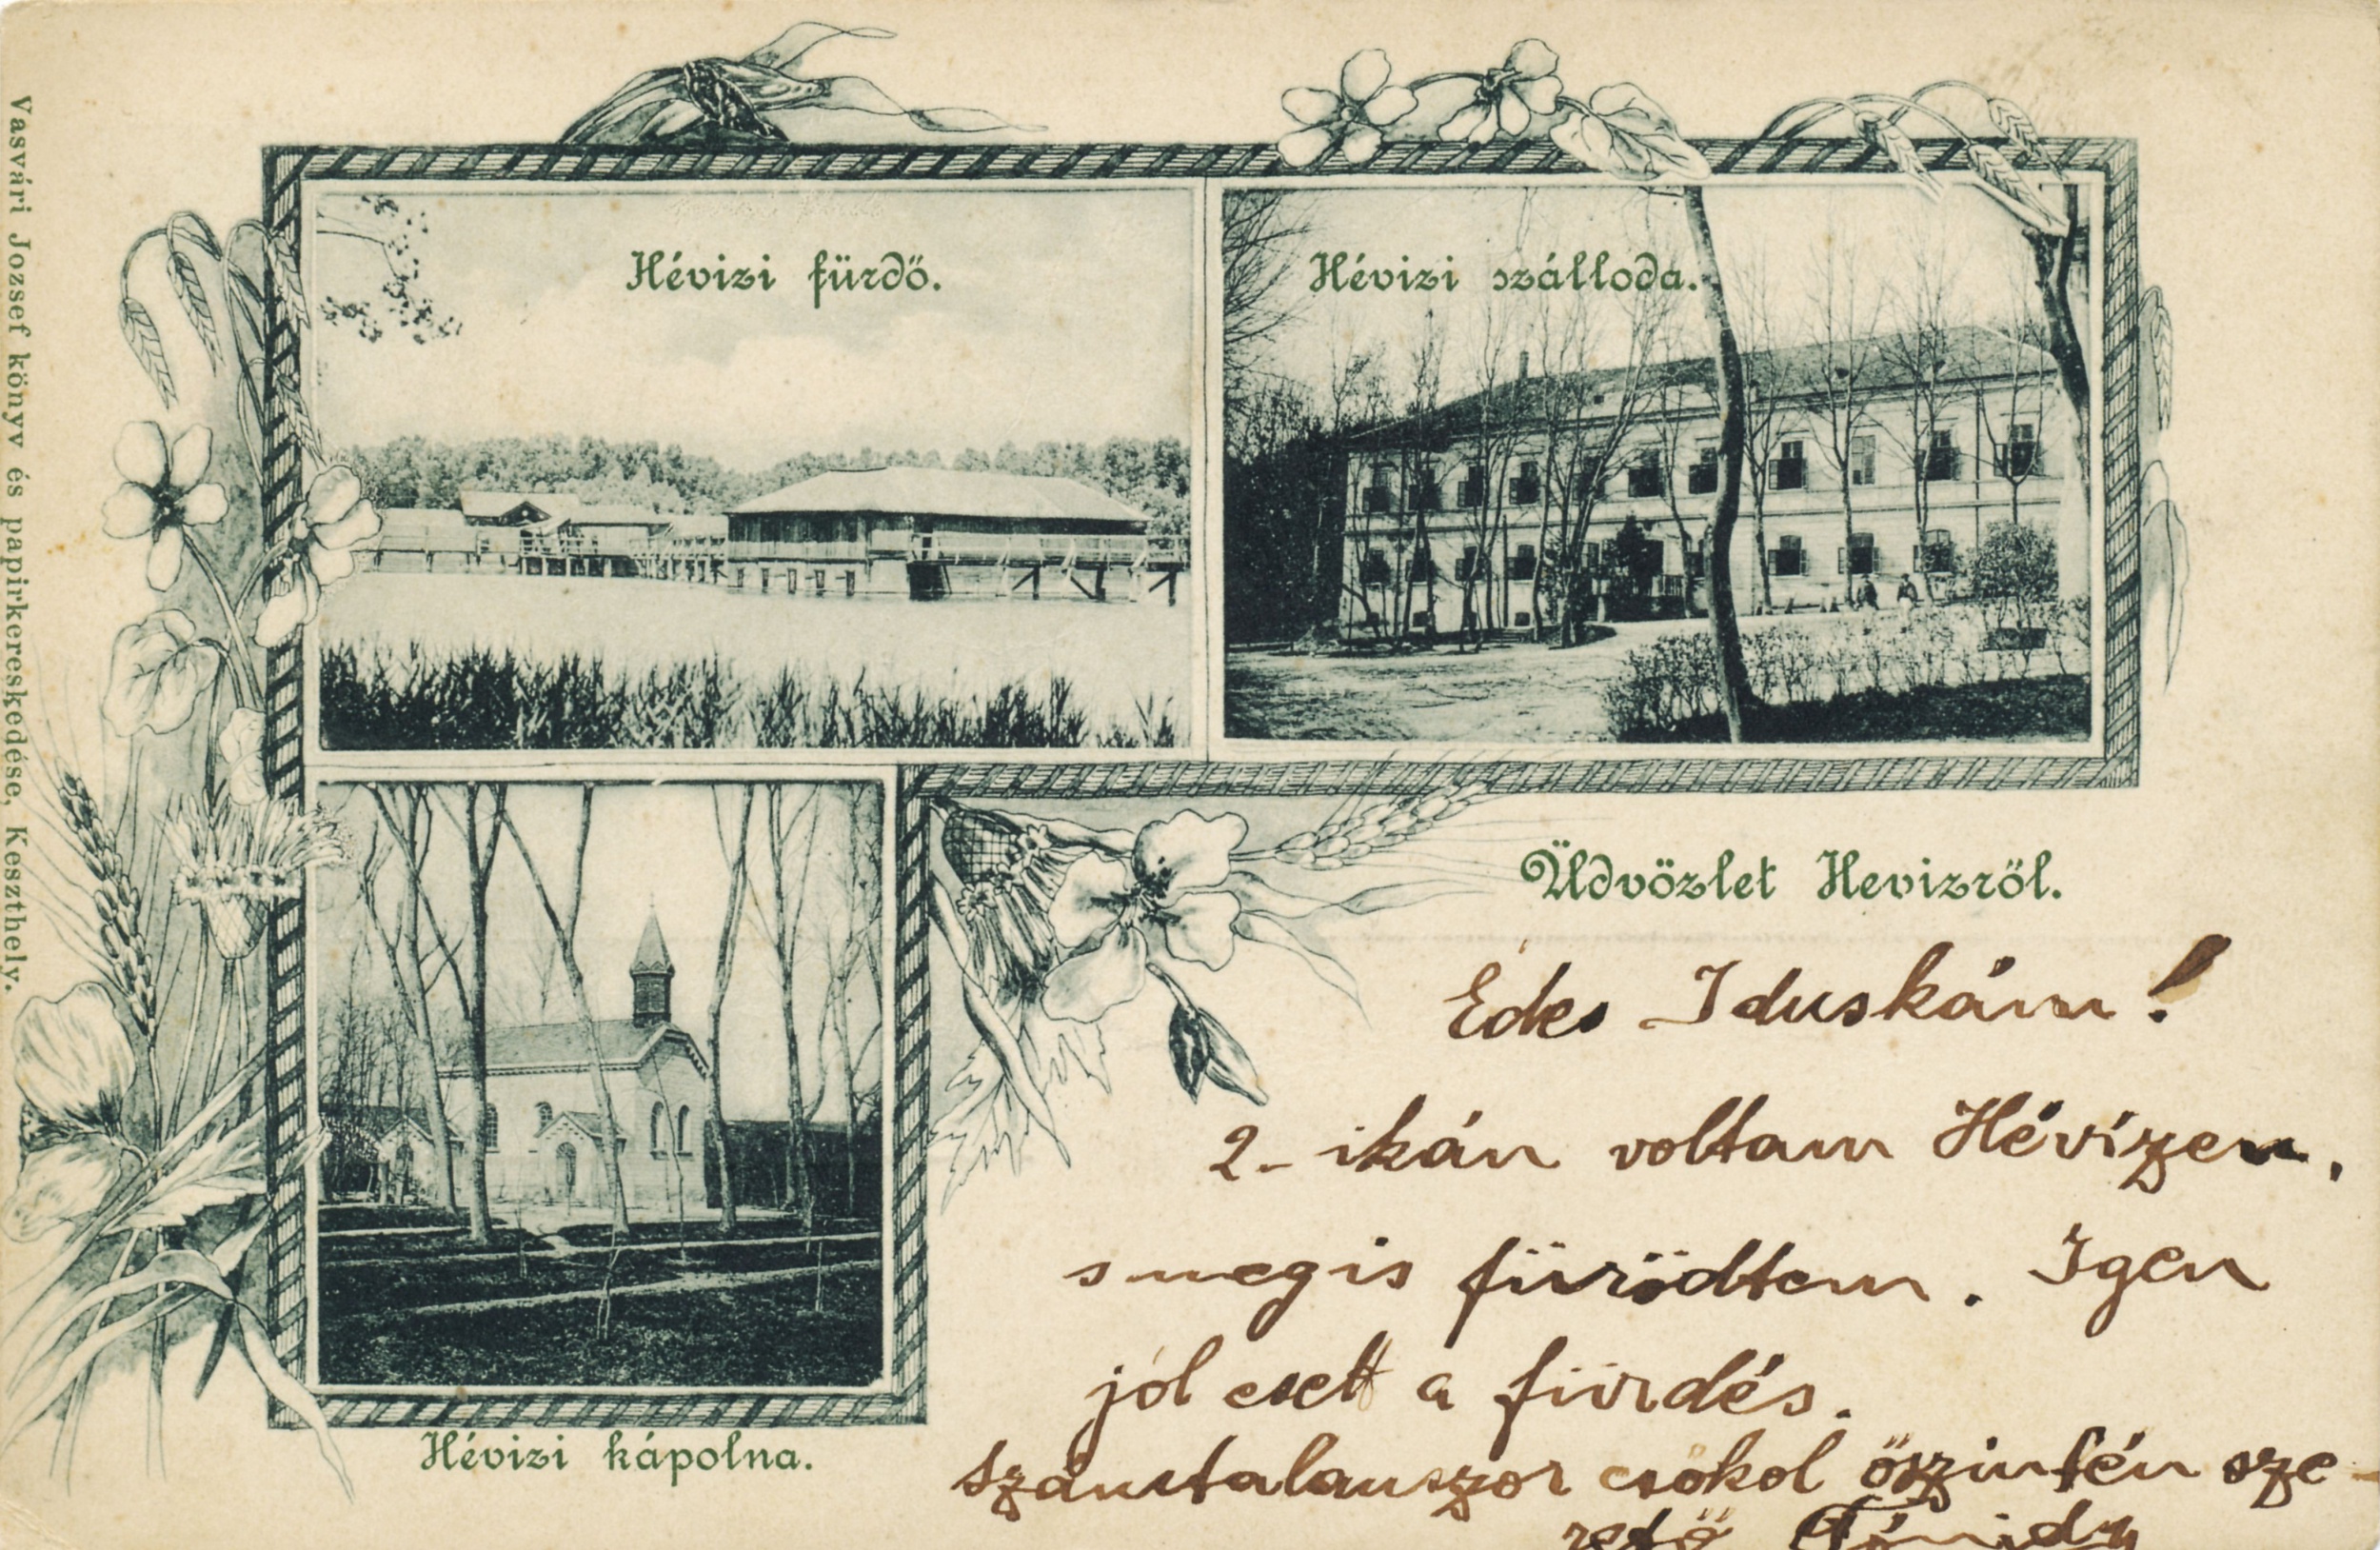 Vasvári Jozsef könyv és papirkereskedése, Keszthely.
Hévizi fürdő.
Hévizi szálloda.
Hévizi kápolna.
Üdvözlet Hevizről.
Édes Iduskám!
2-ikán voltam Hévízen,
s megis fürödtem. Igen
jól esett a fürdés.
Számtalanszor csókol őszintén sze-
rető